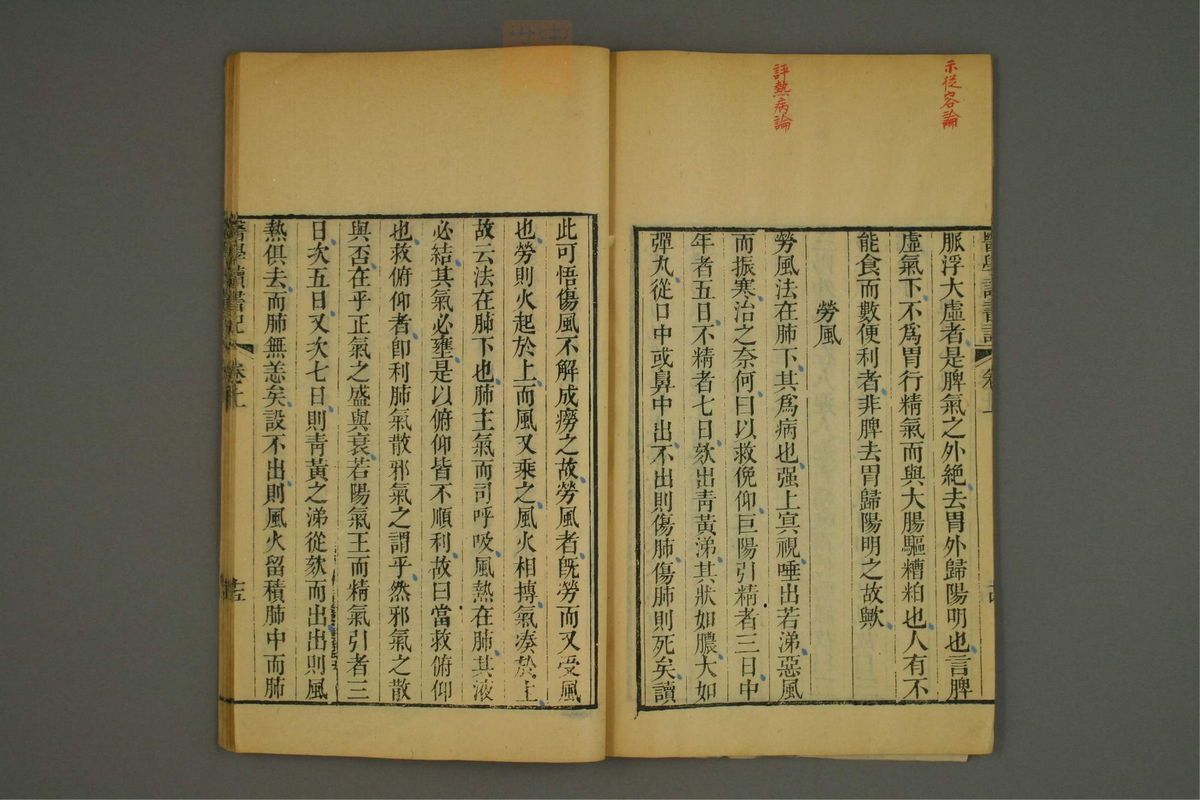 示從容論
評熱病論
醫學讀書記
卷上
脈浮大虛者是脾氣之外絶去胃外歸陽明也言脾
虛氣下不爲胃行精氣而與大腸驅糟粕也人有不
能食而數便利者非脾去胃歸陽明之故歟
勞風
勞風法在肺下其爲病也强上冥視唾出若涕惡風
而振寒治之奈何曰以救俛仰巨陽引精者三日中
年者五日不精者七日欬出靑黃涕其狀如膿大如
彈丸從口中或鼻中出不出則傷肺傷肺則死矣讀
此可悟傷風不解成癆之故勞風者旣勞而又受風
也勞則火起於上而風又乘之風火相摶氣凑於上
故云法在肺下也肺主氣而司呼吸風熱在肺其液
必結其氣必壅是以俯仰皆不順利故曰當救俯仰
也救俯仰者卽利肺氣散邪氣之謂乎然邪氣之散
與否在乎正氣之盛與衰若陽氣王而精氣引者三
日次五日又次七日則靑黃之涕從欬而出出則風
熱俱去而肺無恙矣設不出則風火留積肺中而肺
醫學讀書記
卷上